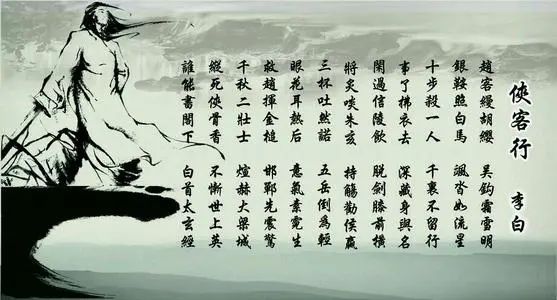 俠客行 李白
趙客縵胡纓 吳鉤霜雪明
銀鞍照白馬 颯沓如流星
十步殺一人 千裏不留行
事了拂衣去 深藏身與名
閑過信陵飲 脫劍膝前橫
將炙啖朱亥 持觴勸侯嬴
三杯吐然諾 五岳倒爲輕
眼花耳熱后 意氣素霓生
救趙揮金槌 邯鄲先震驚
千秋二壯士 煊赫大梁城
縱死俠骨香 不慚世上英
誰能書閣下 白首太玄經